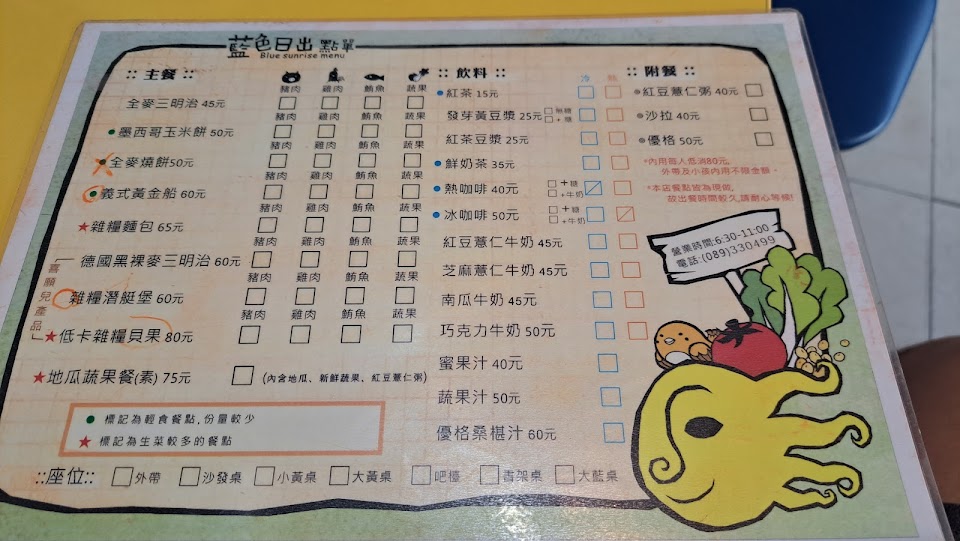 藍色日出 點單
Blue sunrise menu
:: 主餐 ::
豬肉 雞肉 鮪魚 蔬果
全麥三明治 45元
豬肉 雞肉 鮪魚 蔬果
● 墨西哥玉米餅 50元
豬肉 雞肉 鮪魚 蔬果
● 全麥燒餅 50元
豬肉 雞肉 鮪魚 蔬果
● 義式黃金船 60元
豬肉 雞肉 鮪魚 蔬果
★ 雜糧麵包 65元
豬肉 雞肉 鮪魚 蔬果
德國黑裸麥三明治 60元
豬肉 雞肉 鮪魚 蔬果
雜糧潛艇堡 60元
豬肉 雞肉 鮪魚 蔬果
★ 低卡雜糧貝果 80元
喜願兒產品
★ 地瓜蔬果餐(素) 75元 (內含地瓜、新鮮蔬果、紅豆薏仁粥)
● 標記為輕食餐點,份量較少
★ 標記為生菜較多的餐點
:: 飲料 ::
冷 熱
● 紅茶 15元
發芽黃豆漿 25元 無糖 +糖
紅茶豆漿 25元
● 鮮奶茶 35元
● 熱咖啡 40元 +糖 +牛奶
● 冰咖啡 50元 +糖 +牛奶
紅豆薏仁牛奶 45元
芝麻薏仁牛奶 45元
南瓜牛奶 45元
巧克力牛奶 50元
蜜果汁 40元
蔬果汁 50元
優格桑椹汁 60元
:: 附餐 ::
● 紅豆薏仁粥 40元
● 沙拉 40元
● 優格 50元
*內用每人低消80元,
外帶及小孩內用不限金額。
*本店餐點皆為現做,
故出餐時間較久,請耐心等候!
營業時間:6:30-11:00
電話:(089)330499
::座位:: 外帶 沙發桌 小黃桌 大黃桌 吧檯 書架桌 大藍桌